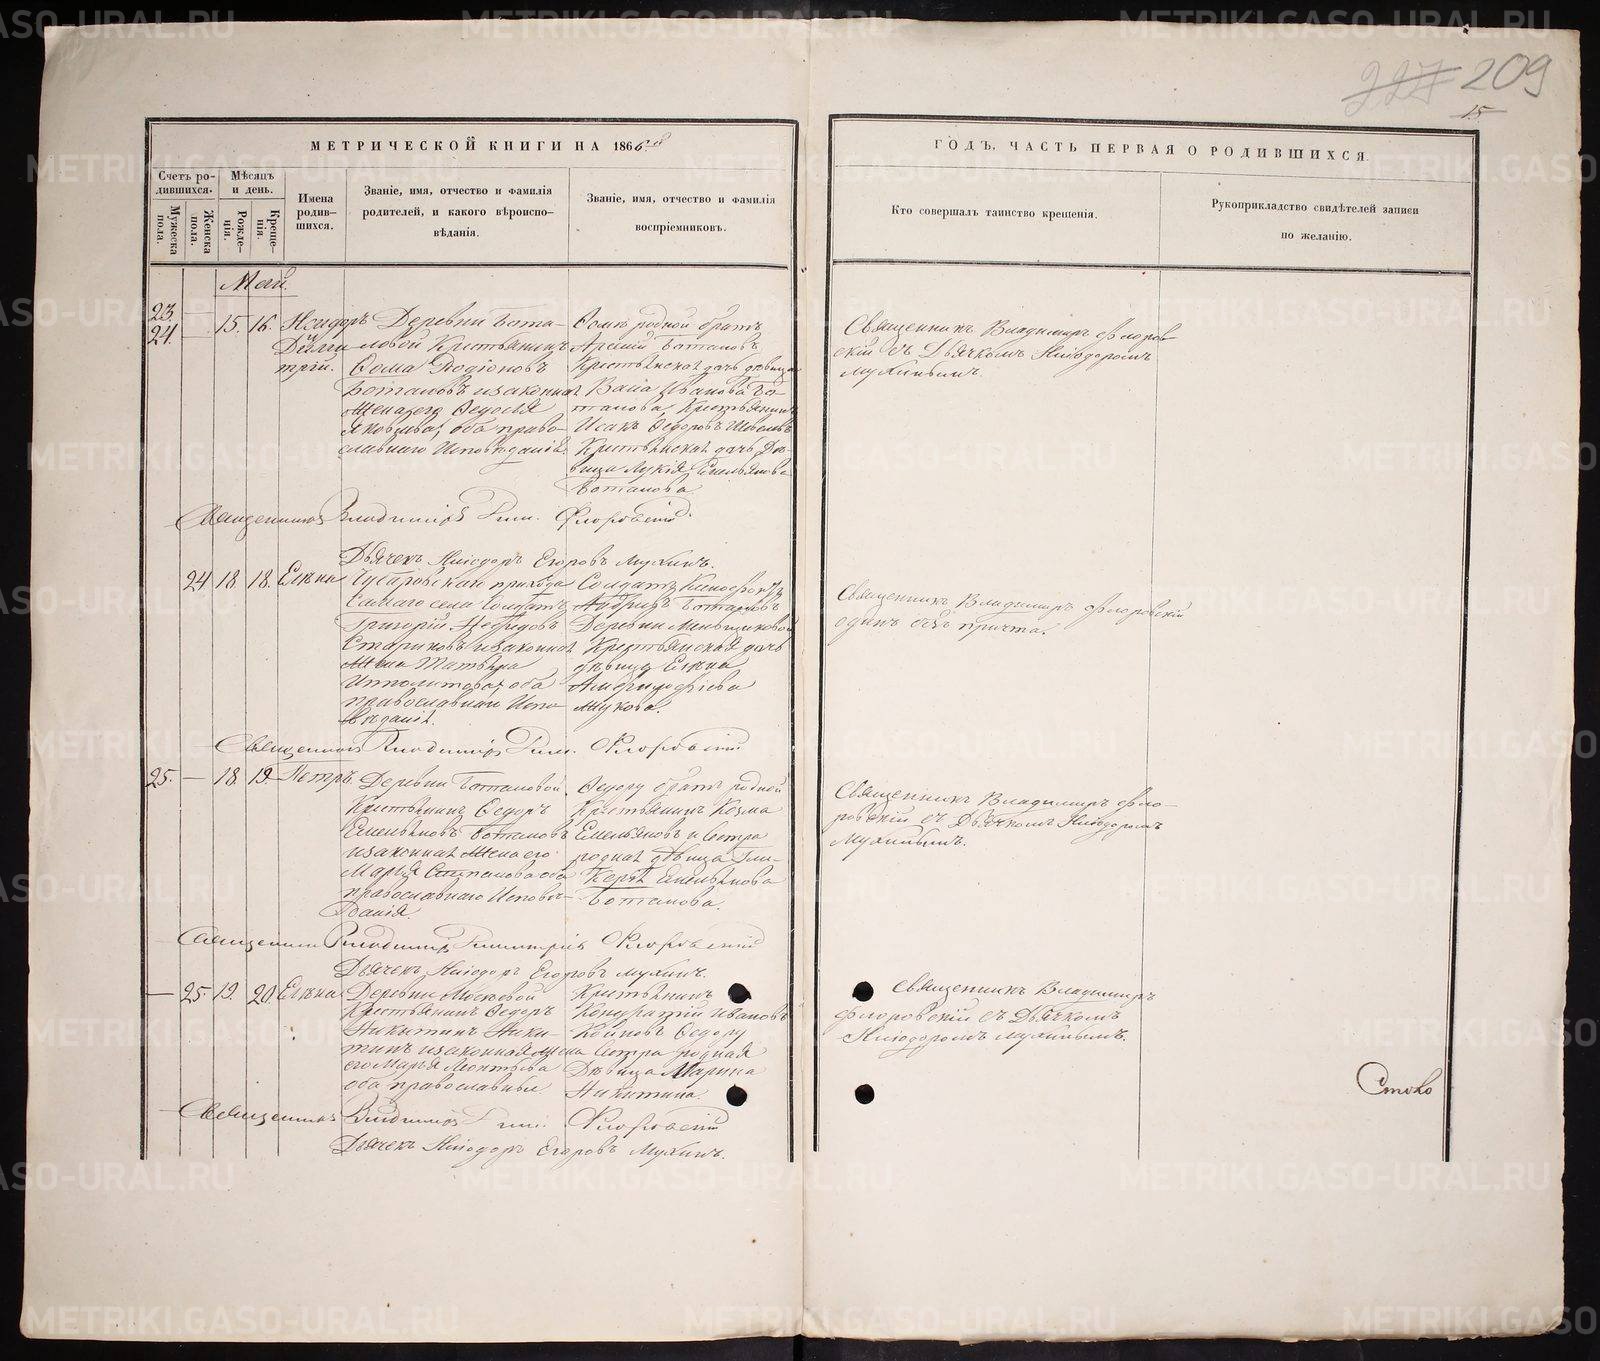 227 209
15.
МЕТРИЧЕСКОЙ КНИГИ НА 1866й
ГОДЪ, ЧАСТЬ ПЕРВАЯ О РОДИВШИХСЯ.
Счетъ ро-
дившихся.
Мѣсяцъ
и день.
Мужеска
пола.
Женска
пола.
Рожде-
нія.
Креще-
нія.
Имена
родив-
шихся.
Званіе, имя, отчество и фамилія
родителей, и какого вѣроиспо-
вѣданія.
Званіе, имя, отчество и фамилія
воспріемниковъ.
Кто совершалъ таинство крещенія.
Рукоприкладство свидѣтелей записи
по желанію.
Май.
23.
24.
15. 16.
Исидоръ
Дими
трій.
Деревни Бота-
ловой Крестьянинъ
Ѳома Родіоновъ
Боталовъ и законная
Жена его Ѳедосья
Яковлева, оба право-
славнаго Исповѣданія.
Ѳомѣ родной братъ
Арсеній Боталовъ
Крестьянская дочь дѣвица
Васса Иванова Бо-
талова, Крестьянинъ
Исакъ Ѳедоровъ
Крестьянская дочь Дѣ-
вица Лукія Емельянова
Боталова.
Священникъ Владимиръ Флоров-
скій съ Дьячкомъ Ниѳодоромъ
Мухинымъ.
Священникъ Владиміръ Флоровскій.
Дьячекъ Егоровъ Мухинъ.
24 18 18. Елена
приходу
самаго села Солдатъ
Григорій
Стариковъ и законная
жена Татьяна
Ипполитова, оба
православнаго Испо-
вѣданія.
Солдатъ
Андреевъ
Деревни Меньщиковой
Крестьянская дочь
дѣвица Елена
Жукова.
Священникъ Владимиръ Флоровскій
одинъ безъ причта.
Священникъ Владиміръ Флоровскій
25. — 18. 19. Петръ.
Деревни Боталовой
Крестьянинъ Ѳедоръ
Емельяновъ Боталовъ
и законная Жена его
Марья Степанова оба
православнаго Исповѣ-
данія.
Ѳедору братъ родной
Крестьянинъ Козма
Емельяновъ и Сестра
родная дѣвица Гли-
керія Емельянова
Боталова.
Священникъ Владимиръ Фло-
ровскій съ Дьячкомъ
Мухинымъ.
Священникъ Владиміръ Флоровскій
Дьячекъ Егоровъ Мухинъ.
— 25. 19. 20. Елена
Деревни Москвовой
Крестьянинъ Ѳедоръ
Никитинъ Ники-
тинъ и законная жена
его Марья Леонтьева
оба православные
Крестьянинъ
Кондратій Ивановъ
Коиновъ Ѳедору
Сестра родная
Дѣвица Марина
Никитина.
Священникъ Владимиръ
Флоровскій съ Дьячкомъ
Мухинымъ.
Священникъ Владиміръ Флоровскій
Дьячекъ Егоровъ Мухинъ.
METRIKI.GASO-URAL.RU